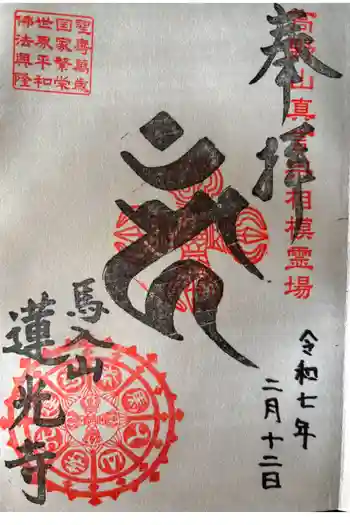 奉拝
高野山真言宗相模霊場
令和七年
二月十二日
聖壽萬歳
国家繁栄
世界平和
佛法興隆
馬入山
蓮光寺